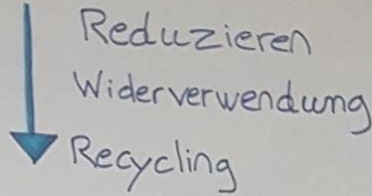 Reduzieren
Widerverwendung
Recycling